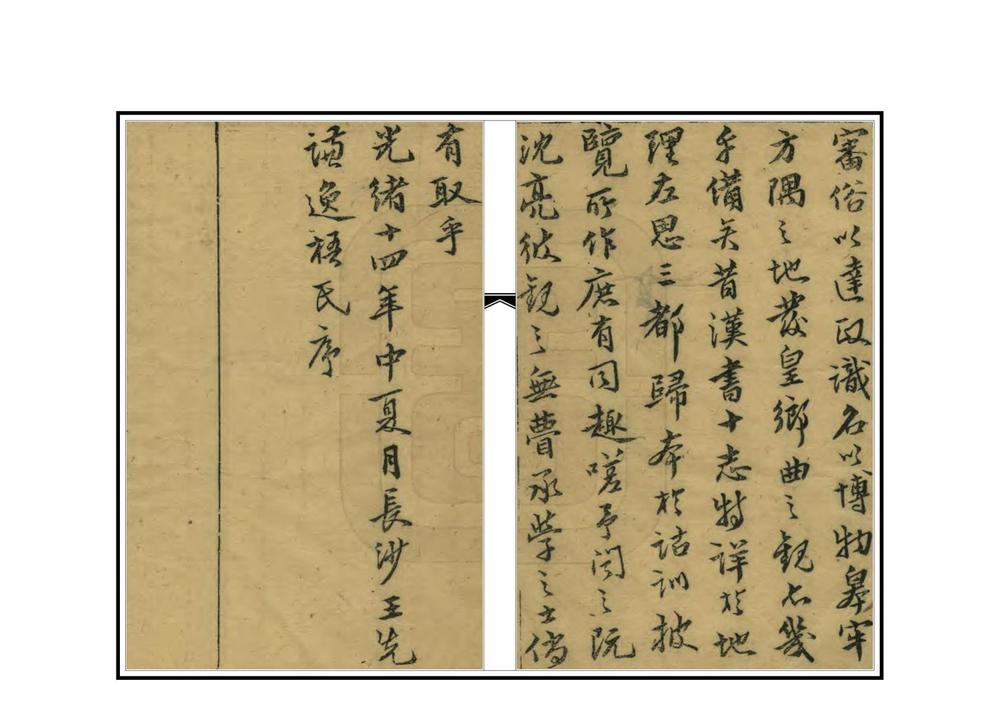 審俗以達政識名以博物皋牢
方隅之地發皇鄉曲之觀亦幾
乎備矣昔漢書十志特詳於地
理左思三都歸本於詁訓披
覽所作庶有同趣嗟予闇之既
沈亮彼觀之無瞢承學之士儻
有取乎
光緒十四年中夏月長沙王先
謙逸梧氏序